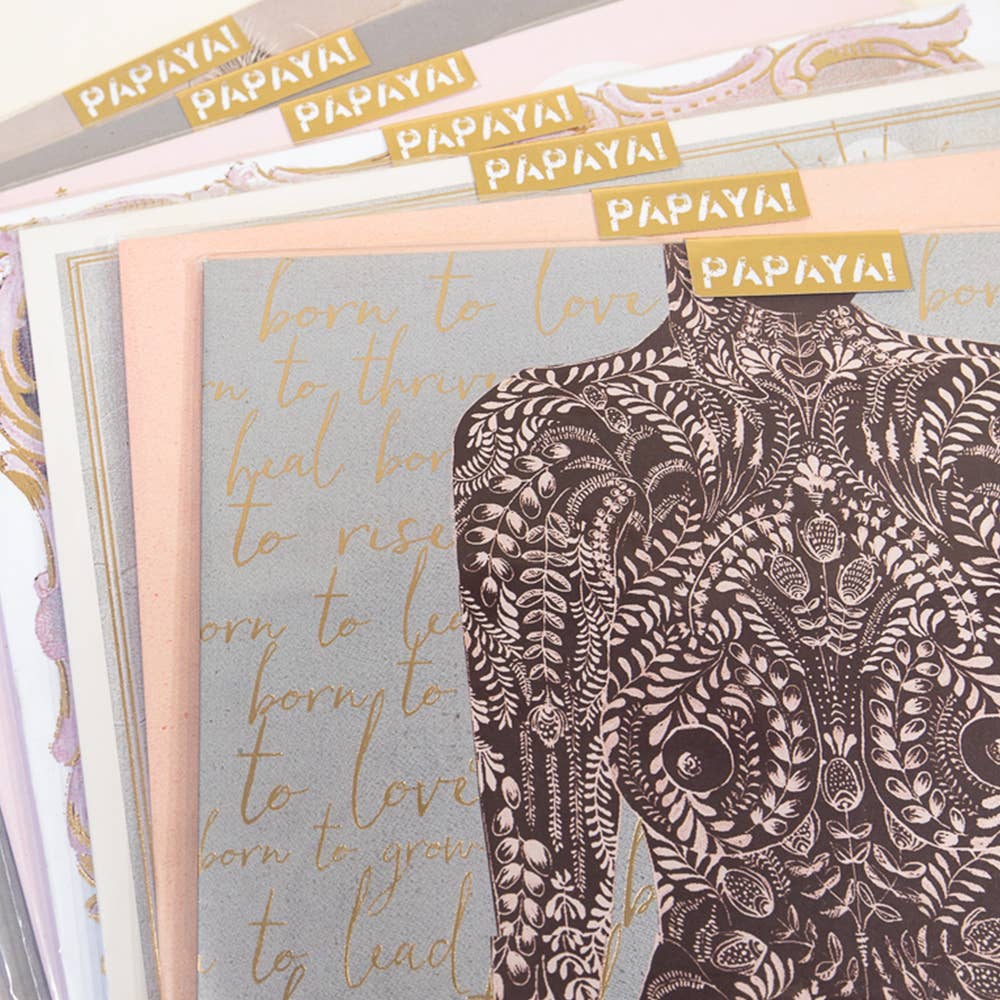 PAPAYA!
PAPAYA!
PAPAYA!
PAPAYA!
PAPAYA!
PAPAYA!
PAPAYA!
born to love bor
n to thrive
heal born
to rise
orn to lea
born to
to love
born to grow
b
to lead